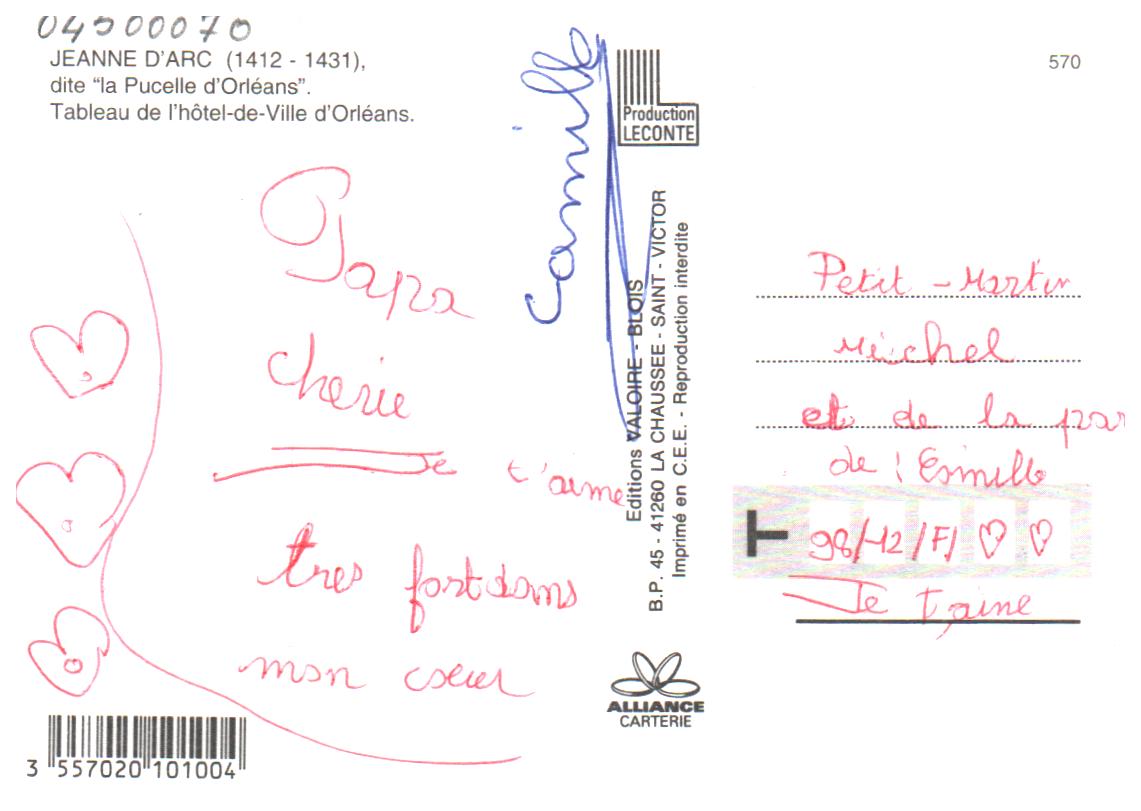 04500070
JEANNE D'ARC (1412 - 1431),
dite "la Pucelle d'Orléans".
Tableau de l'hôtel-de-Ville d'Orléans.
Papa
cherie
Je t'aime
tres fort dans
mon coeur
3 557020 101004
camille
Production
LECONTE
Editions VALOIRE - BLOIS
B.P. 45 - 41260 LA CHAUSSEE - SAINT - VICTOR
Imprimé en C.E.E. - Reproduction interdite
ALLIANCE
CARTERIE
570
Petit - Martin
Michel
et de la par
de
T 98/12/F/
Je t'aime